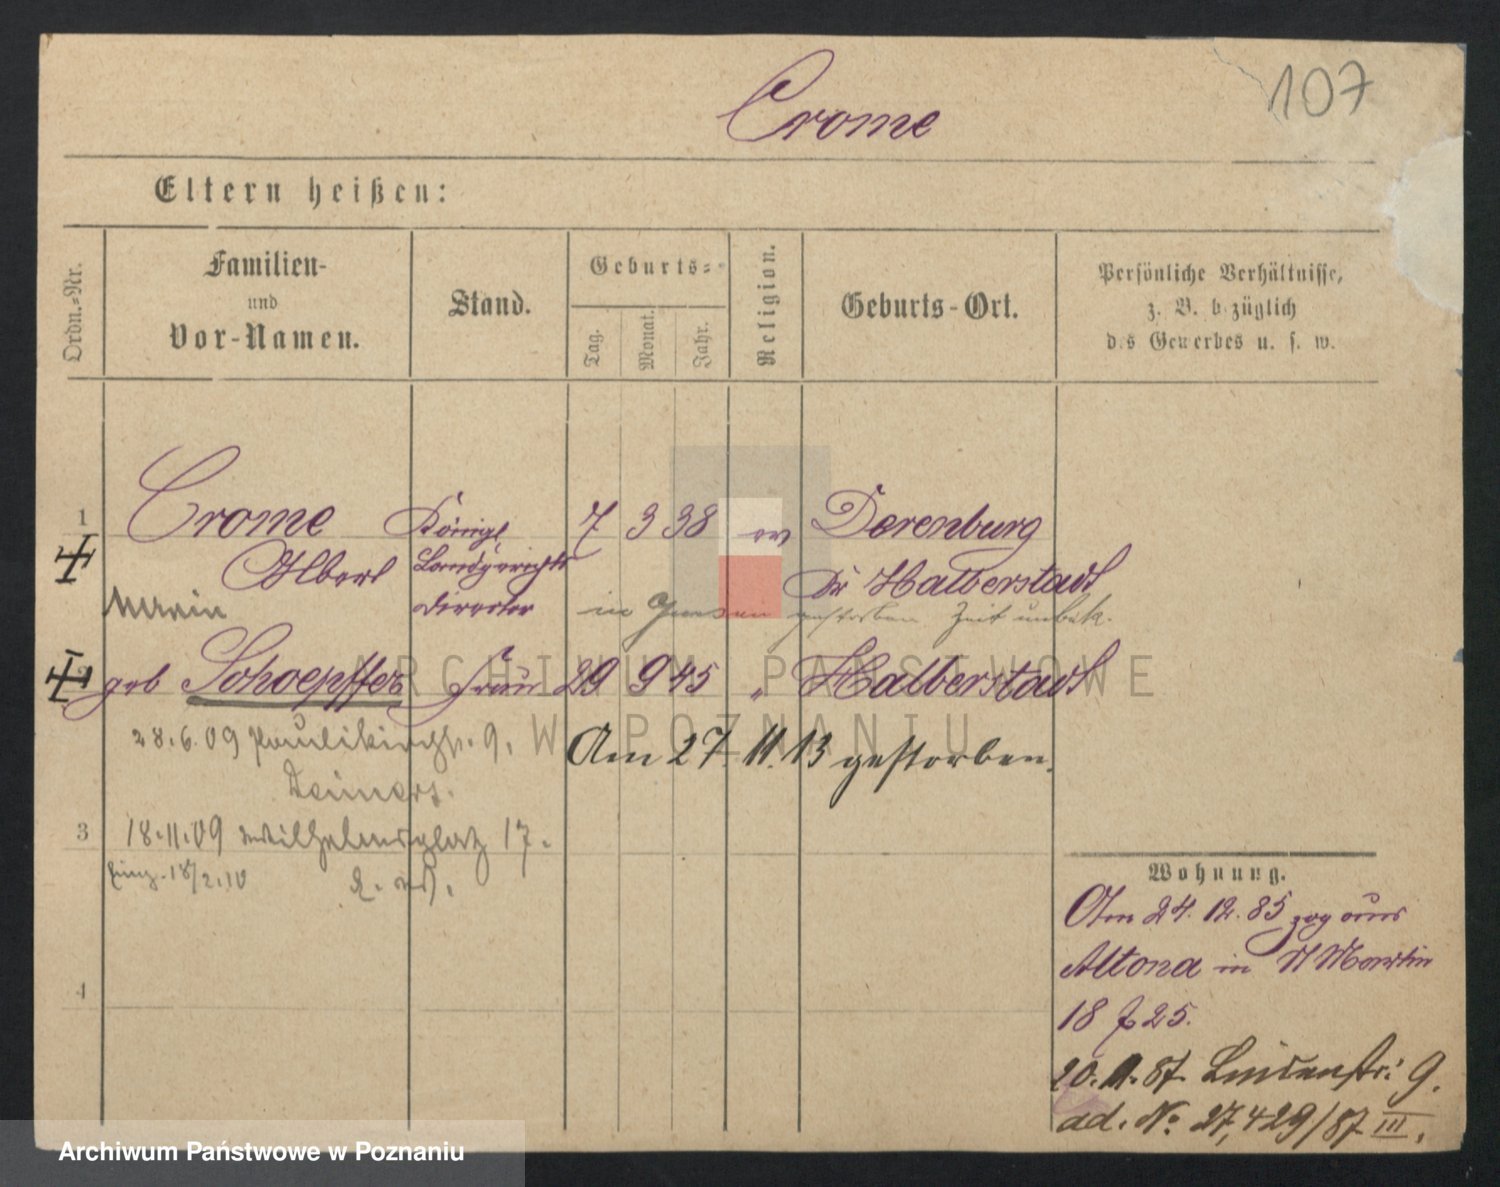 107
Crome
Eltern heißen:
Ordn.-Nr.
Familien-
und
Vor-Namen.
Stand.
Geburts-
Tag.
Monat.
Jahr.
Religion.
Geburts-Ort.
Persönliche Verhältnisse,
z. B. bezüglich
des Gewerbes u. s. w.
1 Crome Königl. 7 3 38 ev Derenburg
Albert Landgerichts Kr Halberstadt
Director in Gnesen gestorben Zeit unbek.
geb Schoepffer Frau 29 9 45 " Halberstadt
28.6.09 Paulikirchstr. 9. Am 27. 11. 13 gestorben.
3 18.11.09 Wilhelmsplatz 17.
18/2.10
4
Wohnung.
Am 24. 12. 85 zog aus
Altona in St Martin
18 25.
20. 11. 87. Lindenstr: 9.
ad. No 27,429/87 III.
ARCHIWUM PAŃSTWOWE
W POZNANIU
Archiwum Państwowe w Poznaniu